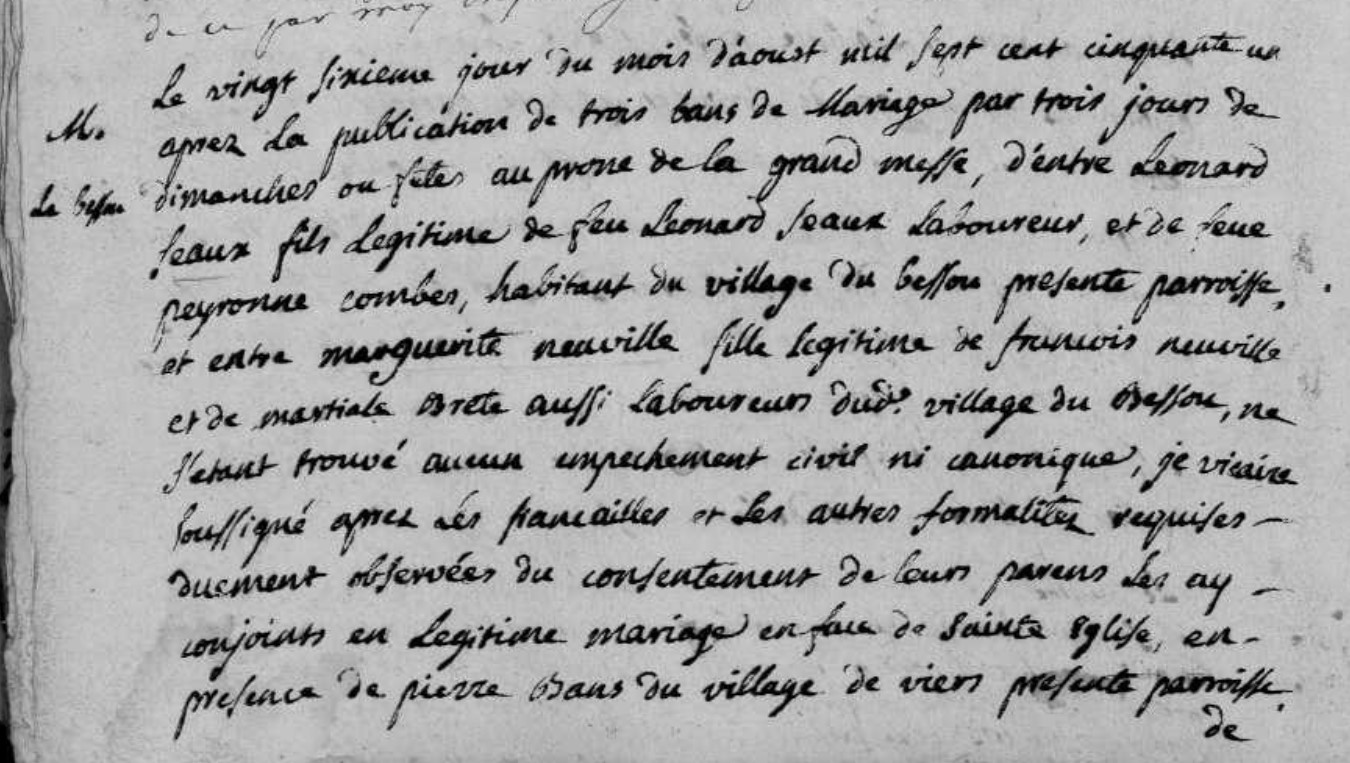 de ce par moy
Le vingt sixieme jour du mois d'aoust mil sept cent cinquante un
M. aprez La publication de trois bans de Mariage par trois jours de
Le bessou dimanches ou fetes au prone de la grand messe, d'entre Leonard
seaux fils Legitime de feu Leonard seaux Laboureur, et de feue
peyronne combes, habitant du village du bessou presente parroisse,
et entre marguerite neuville fille legitime de francois neuville
et de martiale Brete aussi Laboureurs dud. village du Bessou, ne
s'etant trouvé aucun empechement civil ni canonique, je vicaire
soussigné aprez Les fiancailles et Les autres formalitez requises –
duement observées du consentement de leurs parens Les ay –
conjoints en Legitime mariage en face de sainte Eglise, en-
presence de pierre Bans du village de viers presente parroisse.
de